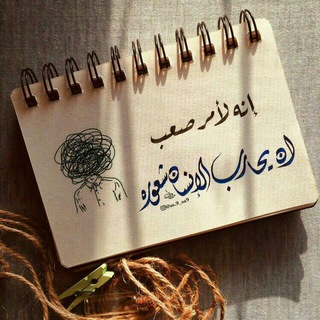 إنه لأمر صعب
ان يحارب الإنسان شعوره